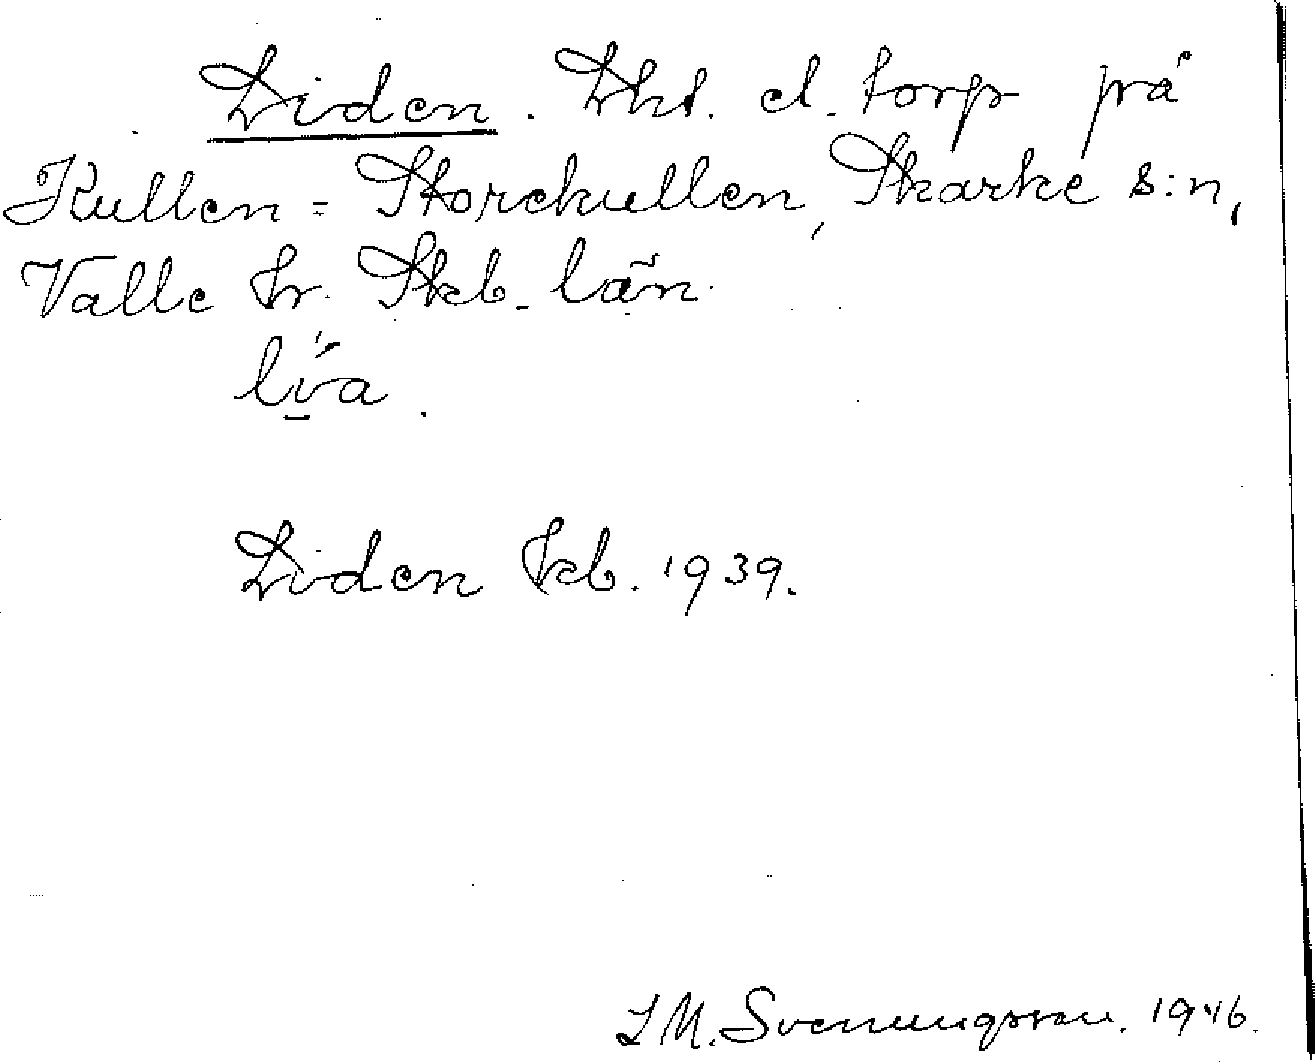 Liden. Lht. el. torp på
Kullen = Storekullen, Skarke s:n,
Valle hr. Skb. län.
lı̀a.
Liden kb. 1939.
S M. Svenungsson. 1946.